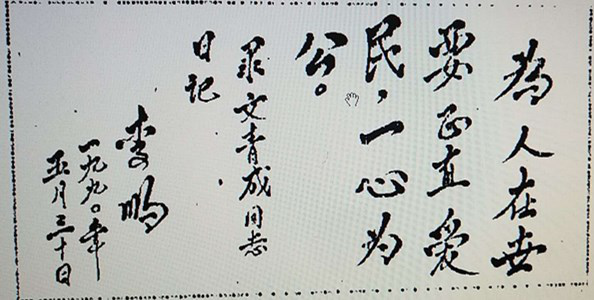 为人在世
要正直爱
民，一心为
公。
录文青成同志
日记
李鹏
一九九〇年
五月三十日